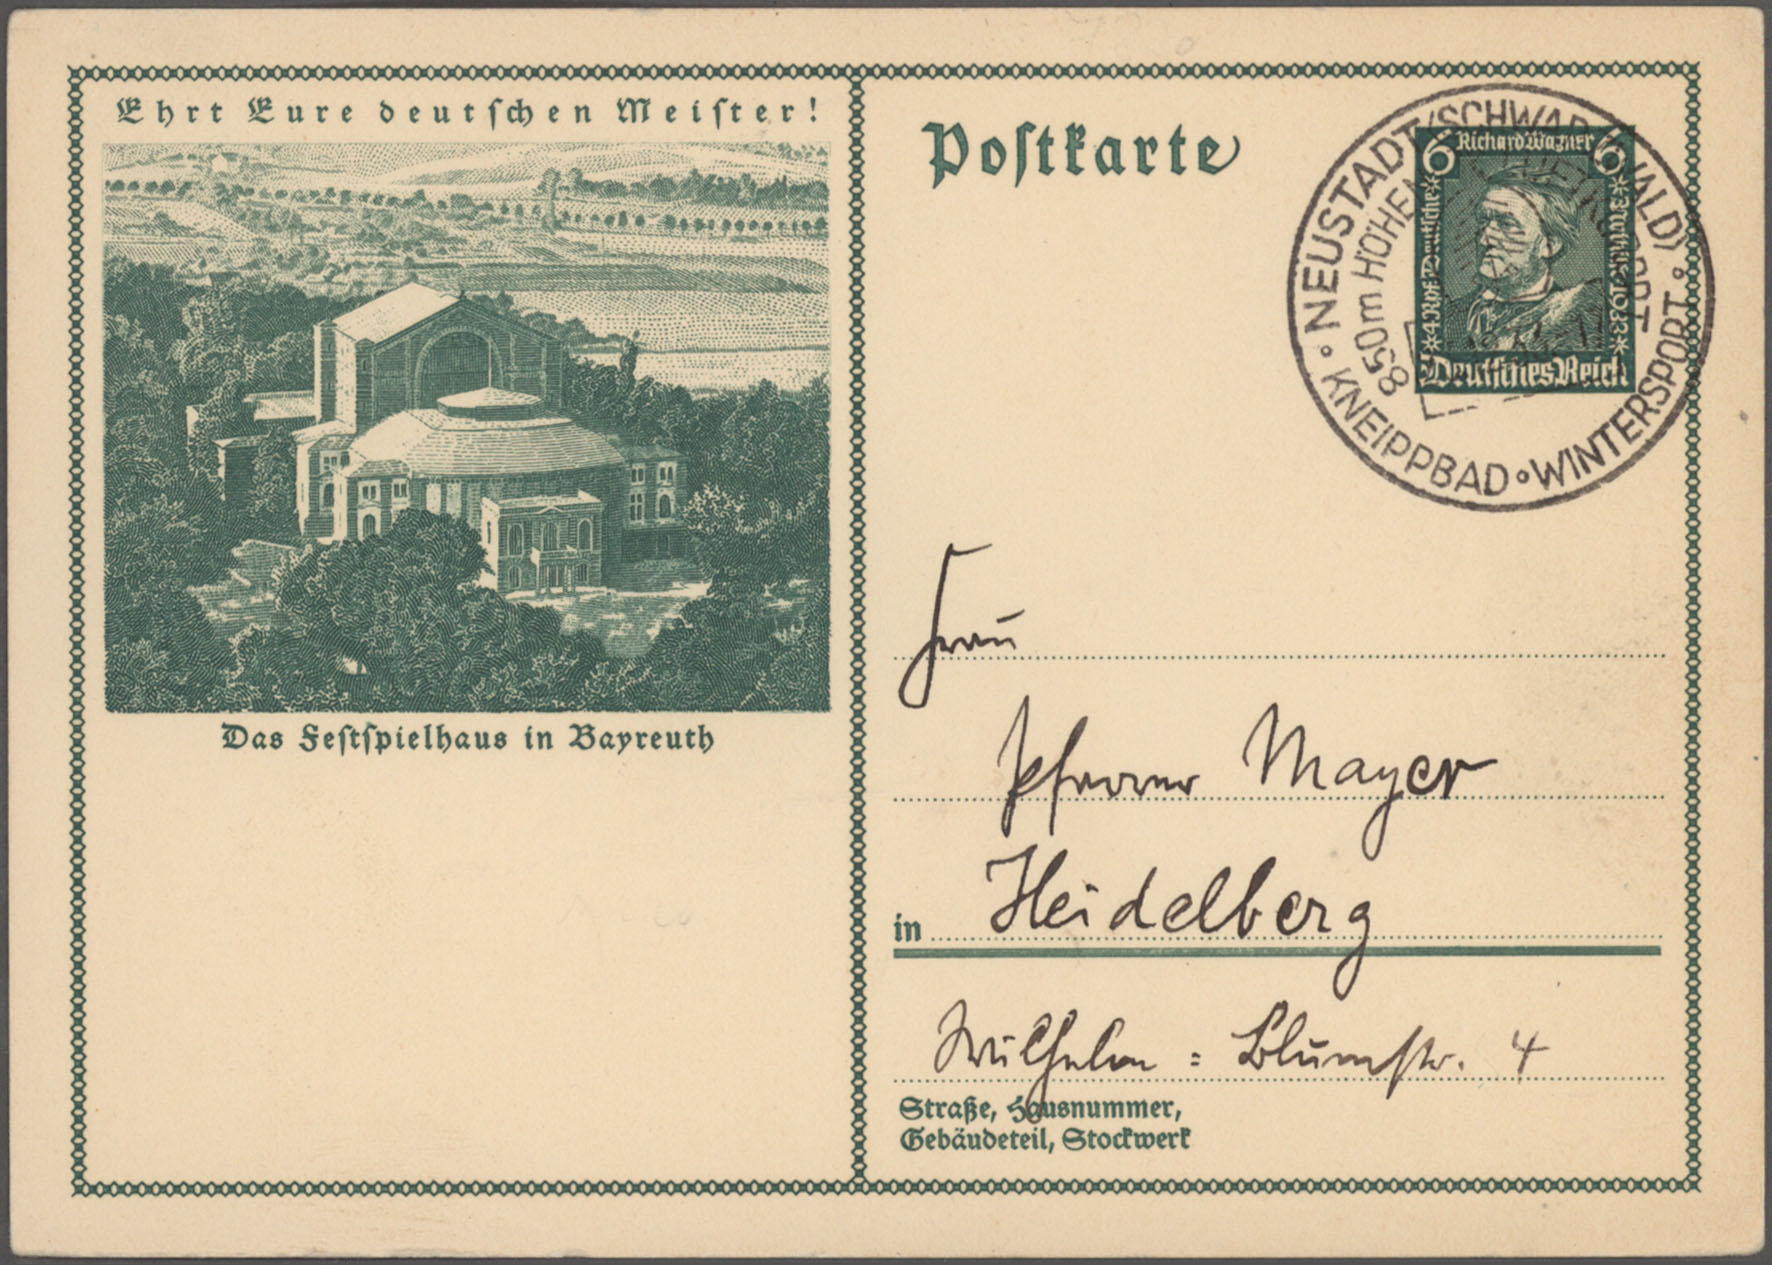 Ehrt Eure deutschen Meister!
Das Festspielhaus in Bayreuth
Postkarte
6 Richard Wagner 6
Deutsches Reich
NEUSTADT (SCHWARZWALD)
850m HÖHEN
KNEIPPBAD • WINTERSPORT
Frau
Pfarrer Mayer
in Heidelberg
Wilhelm = Blumstr. 4
Straße, Hausnummer,
Gebäudeteil, Stockwerk